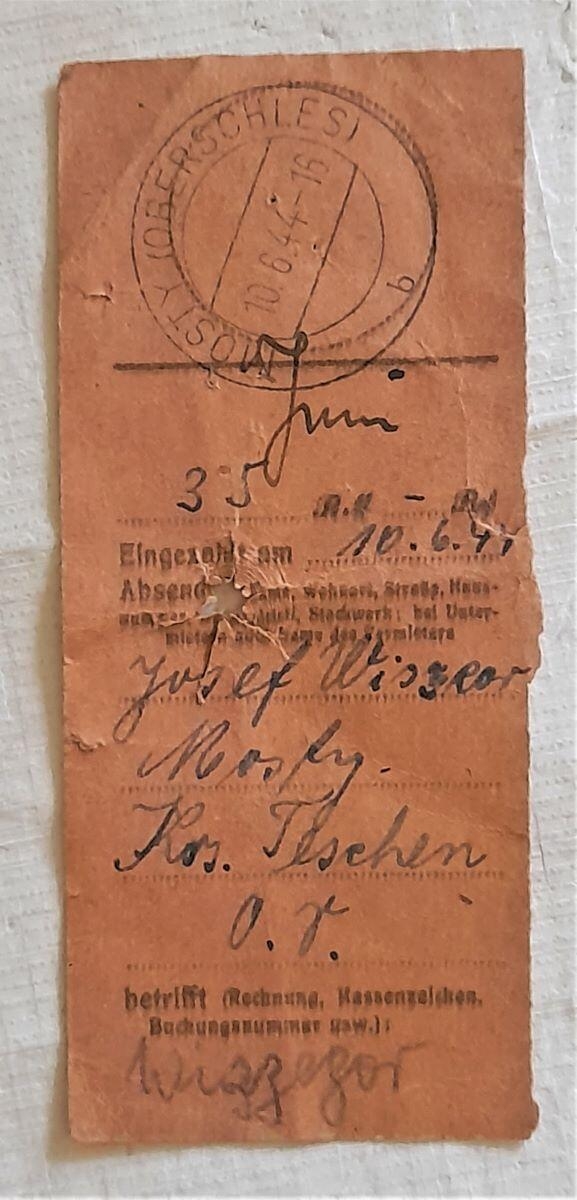 MOSTY (OBERSCHLES)
10.6.44-16
b
Juni
35 RM - Rpf
Eingezahlt am 10.6.44
Absender Name, Wohnort, Straße, Haus-
Stockwerk; bei Unter-
mietern auch Name des Vermieters
Josef
Mosty.
Krs. Teschen
O.
betrifft (Rechnung, Kassenzeichen,
Buchungsnummer usw.):